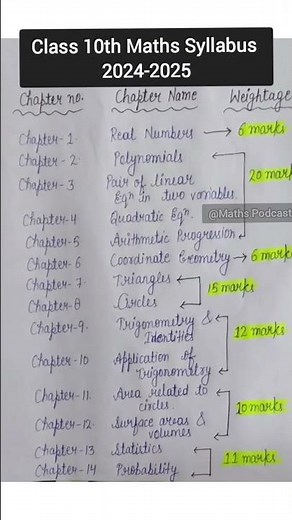 Class 10th Maths Syllabus
2024-2025
Chapter no. Chapter Name Weightage
Chapter-1 Real Numbers → 6 marks
Chapter-2 Polynomials
Chapter-3 Pair of linear 20 mar
Eqn in two variables
@Maths Podcast
Chapter-4 Quadratic Eqn.
Chapter-5 Arithmetic Progression
Chapter-6 Coordinate Geometry → 6 marks
Chapter-7 Triangles
15 marks
Chapter-8 Circles
Chapter-9. Trigonometry &
Identities 12 marks
Chapter-10 Application of
Trigonometry
Chapter-11. Area related to
circles. 10 marks
Chapter-12. Surface areas &
volumes
Chapter-13 Statistics
11 marks
Chapter-14 Probability